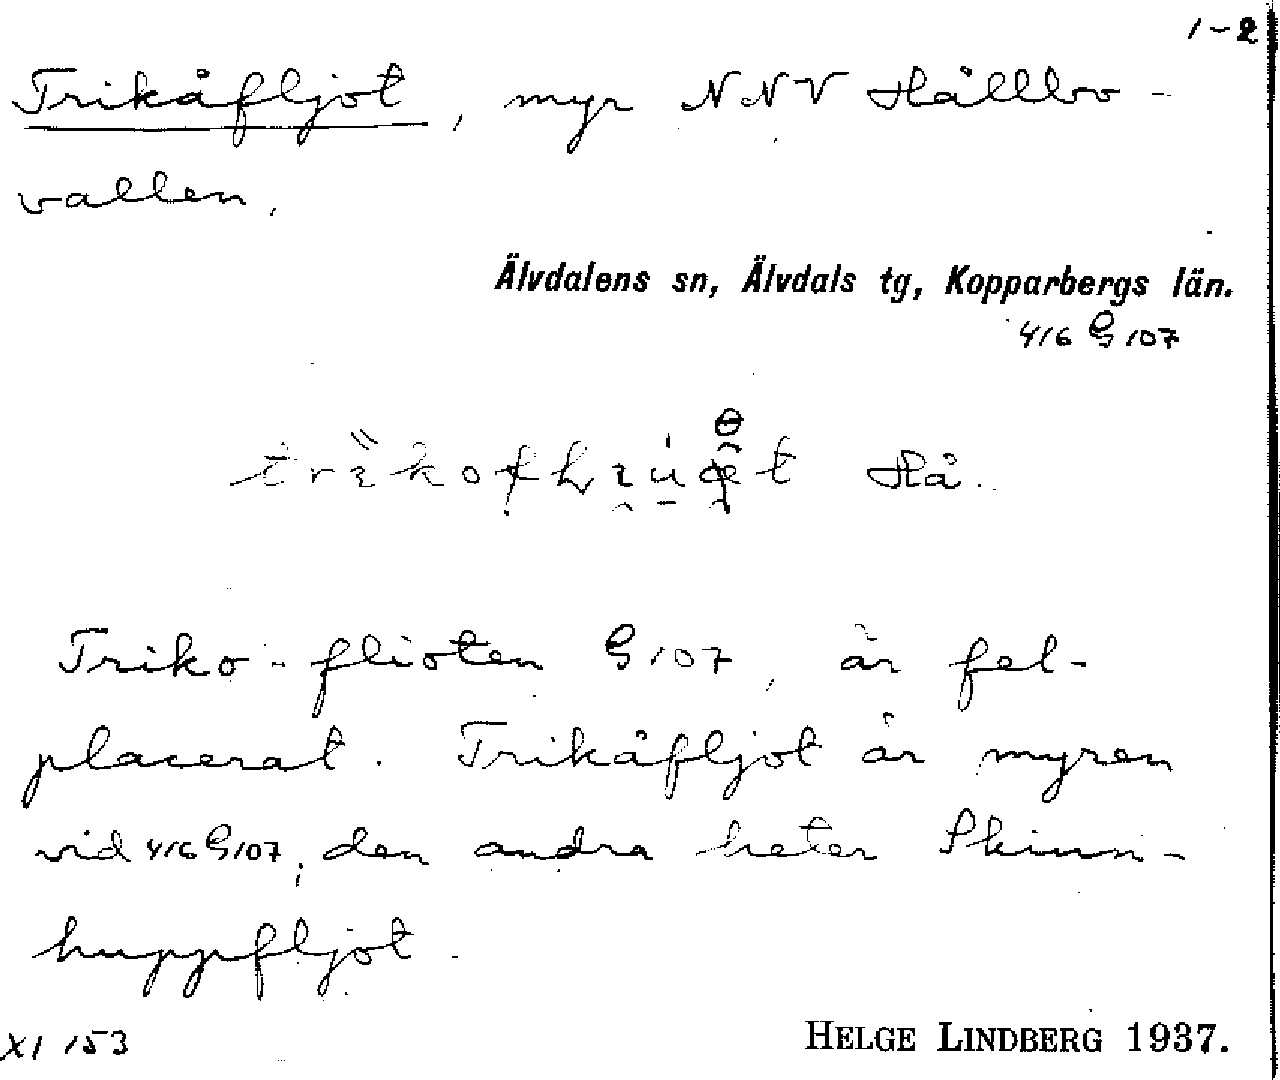 1-2
Trikåfljot, myr NNV Hållbo-
vallen.
Älvdalens sn, Älvdals tg, Kopparbergs län.
416 G 107
Hå.
Triko-flioten G 107, är fel-
placerat. Trikåfljot är myren
vid 416 G 107; den andra heter Skinn-
huppfljot.
XI 153 HELGE LINDBERG 1937.